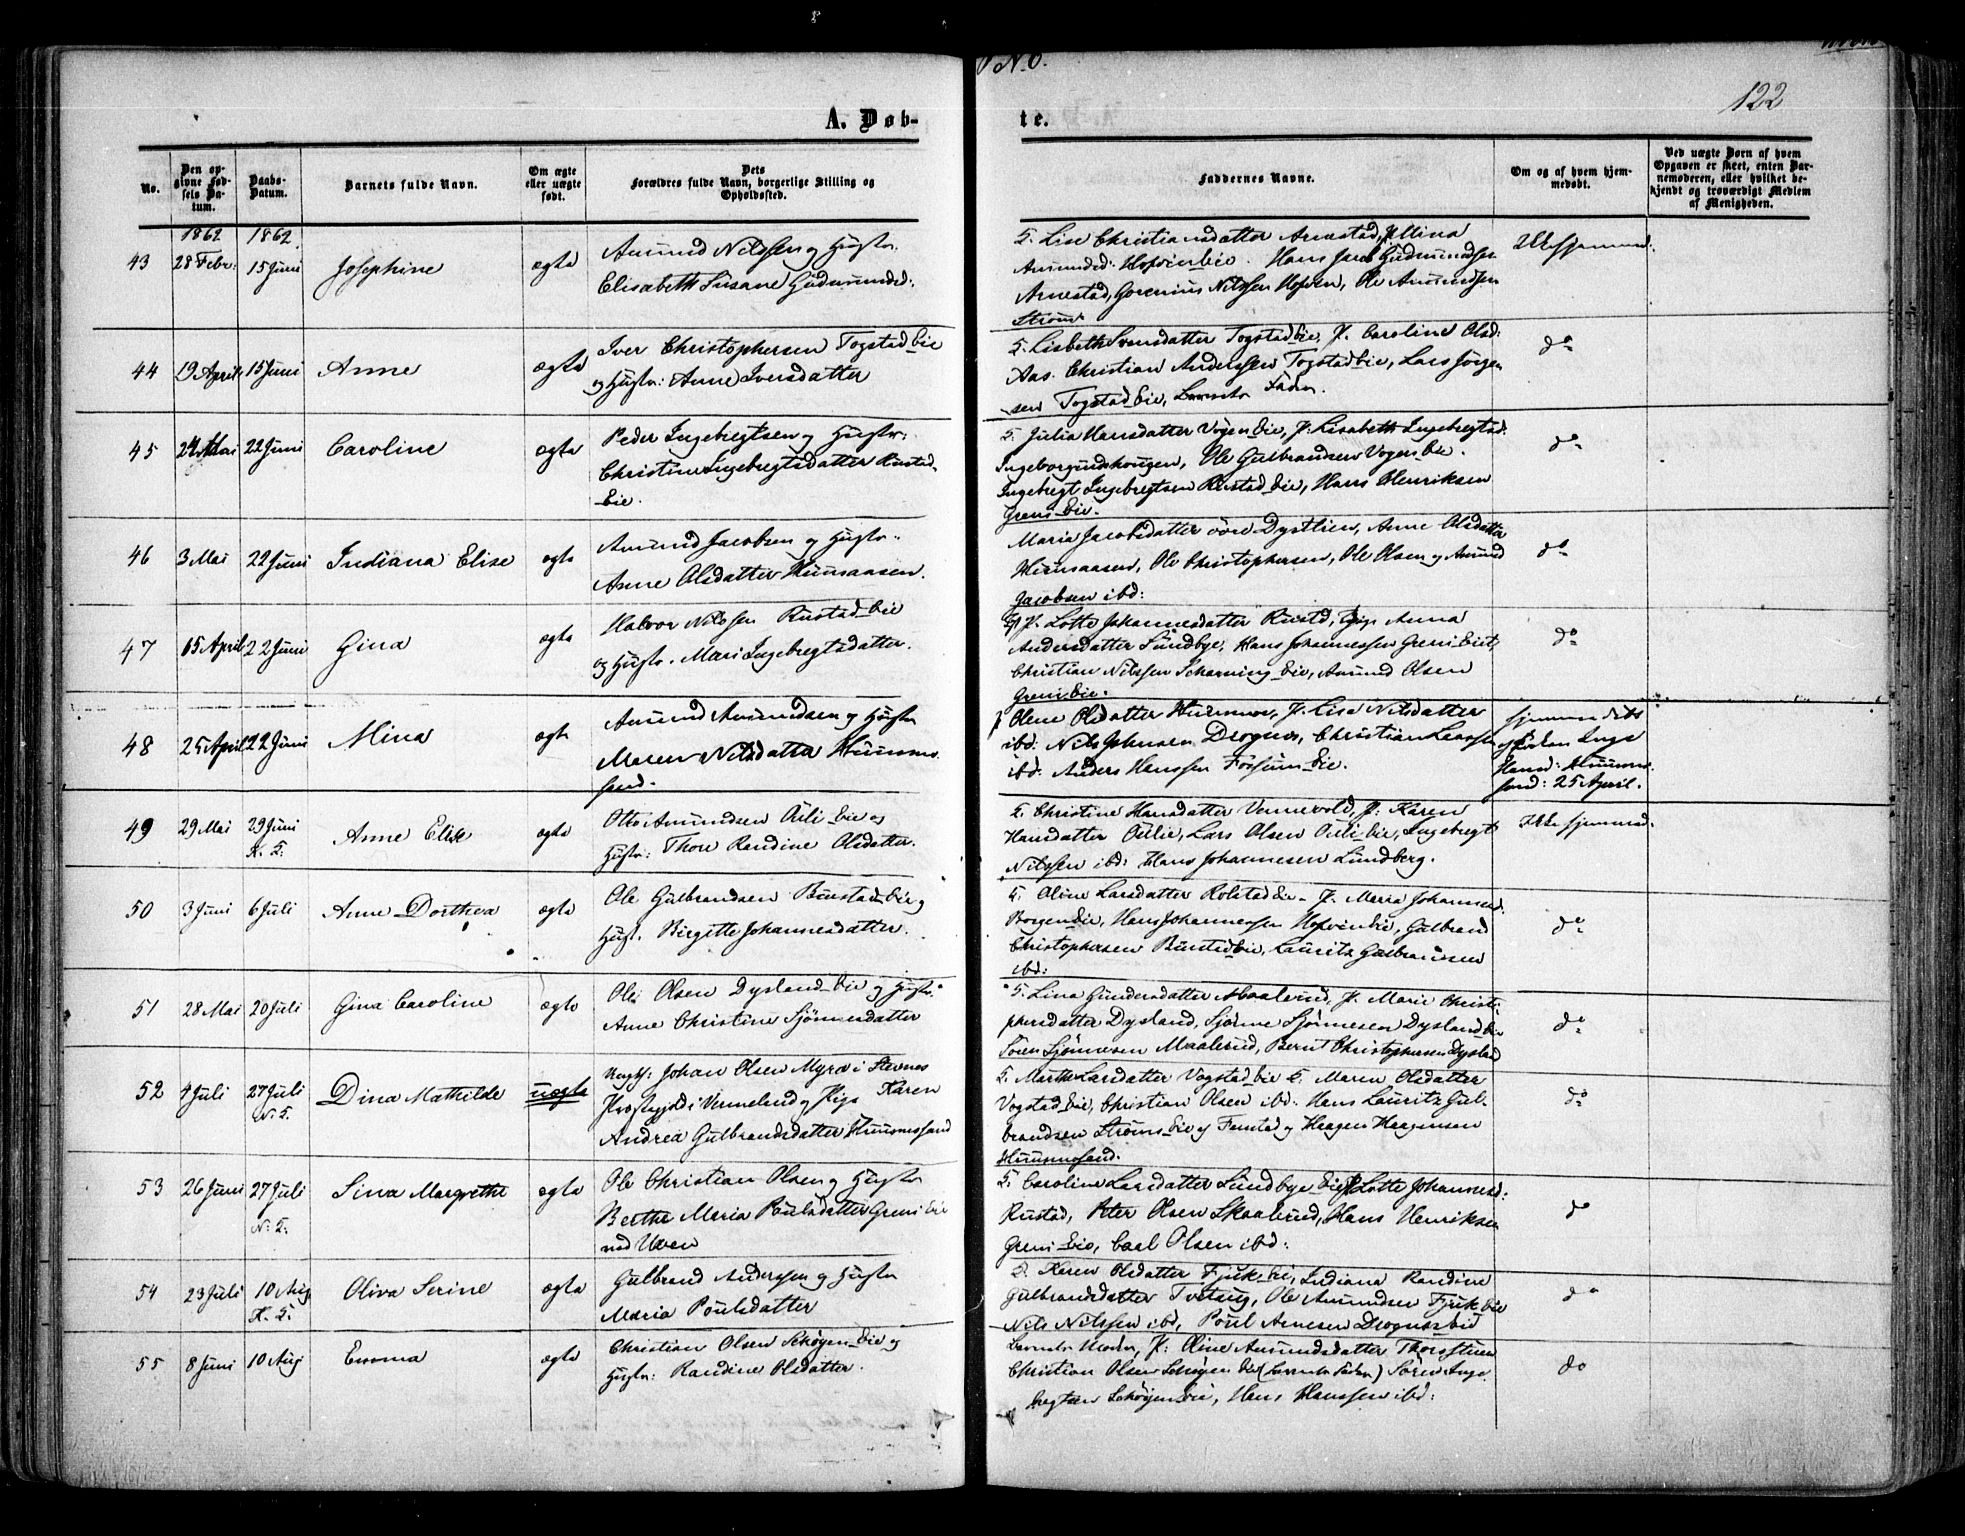 No. 6.
122
A. Døb-
te.
No.
Den op-
givne Fød-
sels Da-
tum.
Daabs-
Datum.
Barnets fulde Navn.
Om ægte
eller uægte
født.
Dets
Forældres fulde Navn, borgerlige Stilling og
Opholdssted.
Faddernes Navne.
Om og af hvem hjem-
medøbt.
Ved uægte Børn af hvem
Opgaven er skeet, enten Bar-
nemoderen, eller hvilket be-
kjendt og troværdigt Medlem
af Menigheden.
1862 1862
43 28 Febr: 15 Juni Josephine ægte
Amund Nilssen og Hustr.
Elisabeth Susane Gudmundsd:
G. Lise Christiansdatter Arnestad, P. Mina
Amundsd: Hofvineie. Hans Jacob Gudmundsen
Arnestad, Nilssen Hofven, Ole Amundsen
Strøm
Ikke hjemmed:
44 19 April 15 Juni Anne ægte
Iver Christophersen Togstad_eie
og Hustr: Anne Iversdatter
G. Lisbeth Svensdatter Togstad_eie, P. Caroline Olsd:
Aas. Christian Anderssen Togstad_eie, Lars Jørgen
sen Togstad_eie, Barnets Fader.
do
45 24 Mai 22 Juni Caroline ægte
Peder Ingebregtsen og Hustr:
Christine Ingebregtsdatter Rustad_
eie.
G. Julia Hansdatter Vogen_eie, P. Lisabeth Ingebregtsd.
Ole Gulbrandsen Vogen_eie.
Ingebregt Ingebregtsen Rustad_eie, Hans Henriksen
Greni_eie.
do
46 3 Mai 22 Juni Indiana Elise ægte
Amund Jacobsen og Hustr.
Anne Olsdatter Huusaasen.
Maria Jacobsdatter øvre Dystlien, Anne Olsdatter
Huusaasen, Ole Christophersen, Ole Olsen og Amund
Jacobsen ibd:
do
47 15 April 22 Juni Gina ægte
Halvor Nilssen Rustad_eie
og Hustr. Mari Ingebregtsdatter.
P. Lotte Johannesdatter Rustd, Pige Anna
Andersdatter Sundbye, Hans Johannessen Greni_eiet,
Christian Nilssen Scharning_eie, Amund Olsen
Greni_eie.
do
48 25 April 22 Juni Mina ægte
Amund Amundsen og Hustr
Maren Nilsdatter Huusmo
sand.
Olene Olsdatter P. Lise Nilsdatter
ibd. Nils Johnsen Drognes, Christian Larssen
ibd. Anders Hanssen Fossum_eie.
hjemmedøbt
af Inge
Hansd:
sand: 25 April.
49 29 Mai 29 Juni Anne Elise ægte
K. T.
Otto Amundsen Ouli_eie og
Hustr: Thore Randine Olsdatter.
G. Christine Hansdatter Vennevold, P. Karen
Hansdatter Oulie, Lars Olsen Ouli_eie, Ingebregt
Nilssen ibd: Hans Johannesen Lundberg.
Ikke hjemmed.
50 3 Juni 6 Juli Anne Dorthea ægte
Ole Gulbrandsen Bunstad_eie og
Hust. Birgitte Johannesdatter.
G. Oline Larsdatter Rolstad_eie_ P. Maria Johannesd:
Borgen_eie, Hans Johannessen Hofvin_eie, Gulbrand
Christophersen Bunstad_eie, Lauritz Gulbrandsen
ibd:
do
51 28 Mai 20 Juli Gina Caroline ægte
Ole Olsen Dysland_eie og Hustr.
Anne Christine Sjønnesdatter
G. Lina Gundersdatter Maalerud, P. Marie Christo
phersdatter Dysland, Sjønne Sjønnesen Dysland_eie
Søren Sjønnesen Maalerud, Bernt Christophersen Dysland
do
52 4 Juli 27 Juli Dina Mathilde uægte
N. T.
Ungk: Johan Olsen Myra i Stavnes
Præstegjeld i Vermelund og Pige Karen
Andrea Gulbrandsdatter
G. Marthe Larsdatter Vogstad_eie G. Maren Olsdatter
Vogstad_eie, Christian Olsen ibd: Hans Lauritz Gul-
brandsen Strøms_eie Fenstad og Haagen Haagensen
do
53 26 Juni 27 Juli Sina Margrethe ægte
N. T.
Ole Christian Olsen og Hustr
Berthe Maria Poulsdatter Greni_eie
ned Uven
G. Caroline Larsdatter Sundbye_eie, P. Lotte Johannesd:
Rustad, Peter Olsen Skaalerud, Hans Henriksen
Greni_eie, Carl Olsen ibd:
do
54 23 Juli 10 Aug Oliva Serine ægte
K. T.
Gulbrand Anderssen og Hustr
Maria Poulsdatter
G. Karen Olsdatter Fjuk_eie, Indiana Randine
Gulbrandsdatter Ole Amundsen Fjuk_eie
Nils Nilssen ibd, Poul Arnesen
do
55 8 Juni 10 Aug Emma ægte
Christian Olsen Schøyen_eie og
Hustr: Randine Olsdatter.
Barnets Moder, P. Oline Amundsdatter
Christian Olsen Schøyen_eie (Barnets Fader) Søren Inge
bregtsen Schøyen_eie, Hans Hanssen ibd:
do